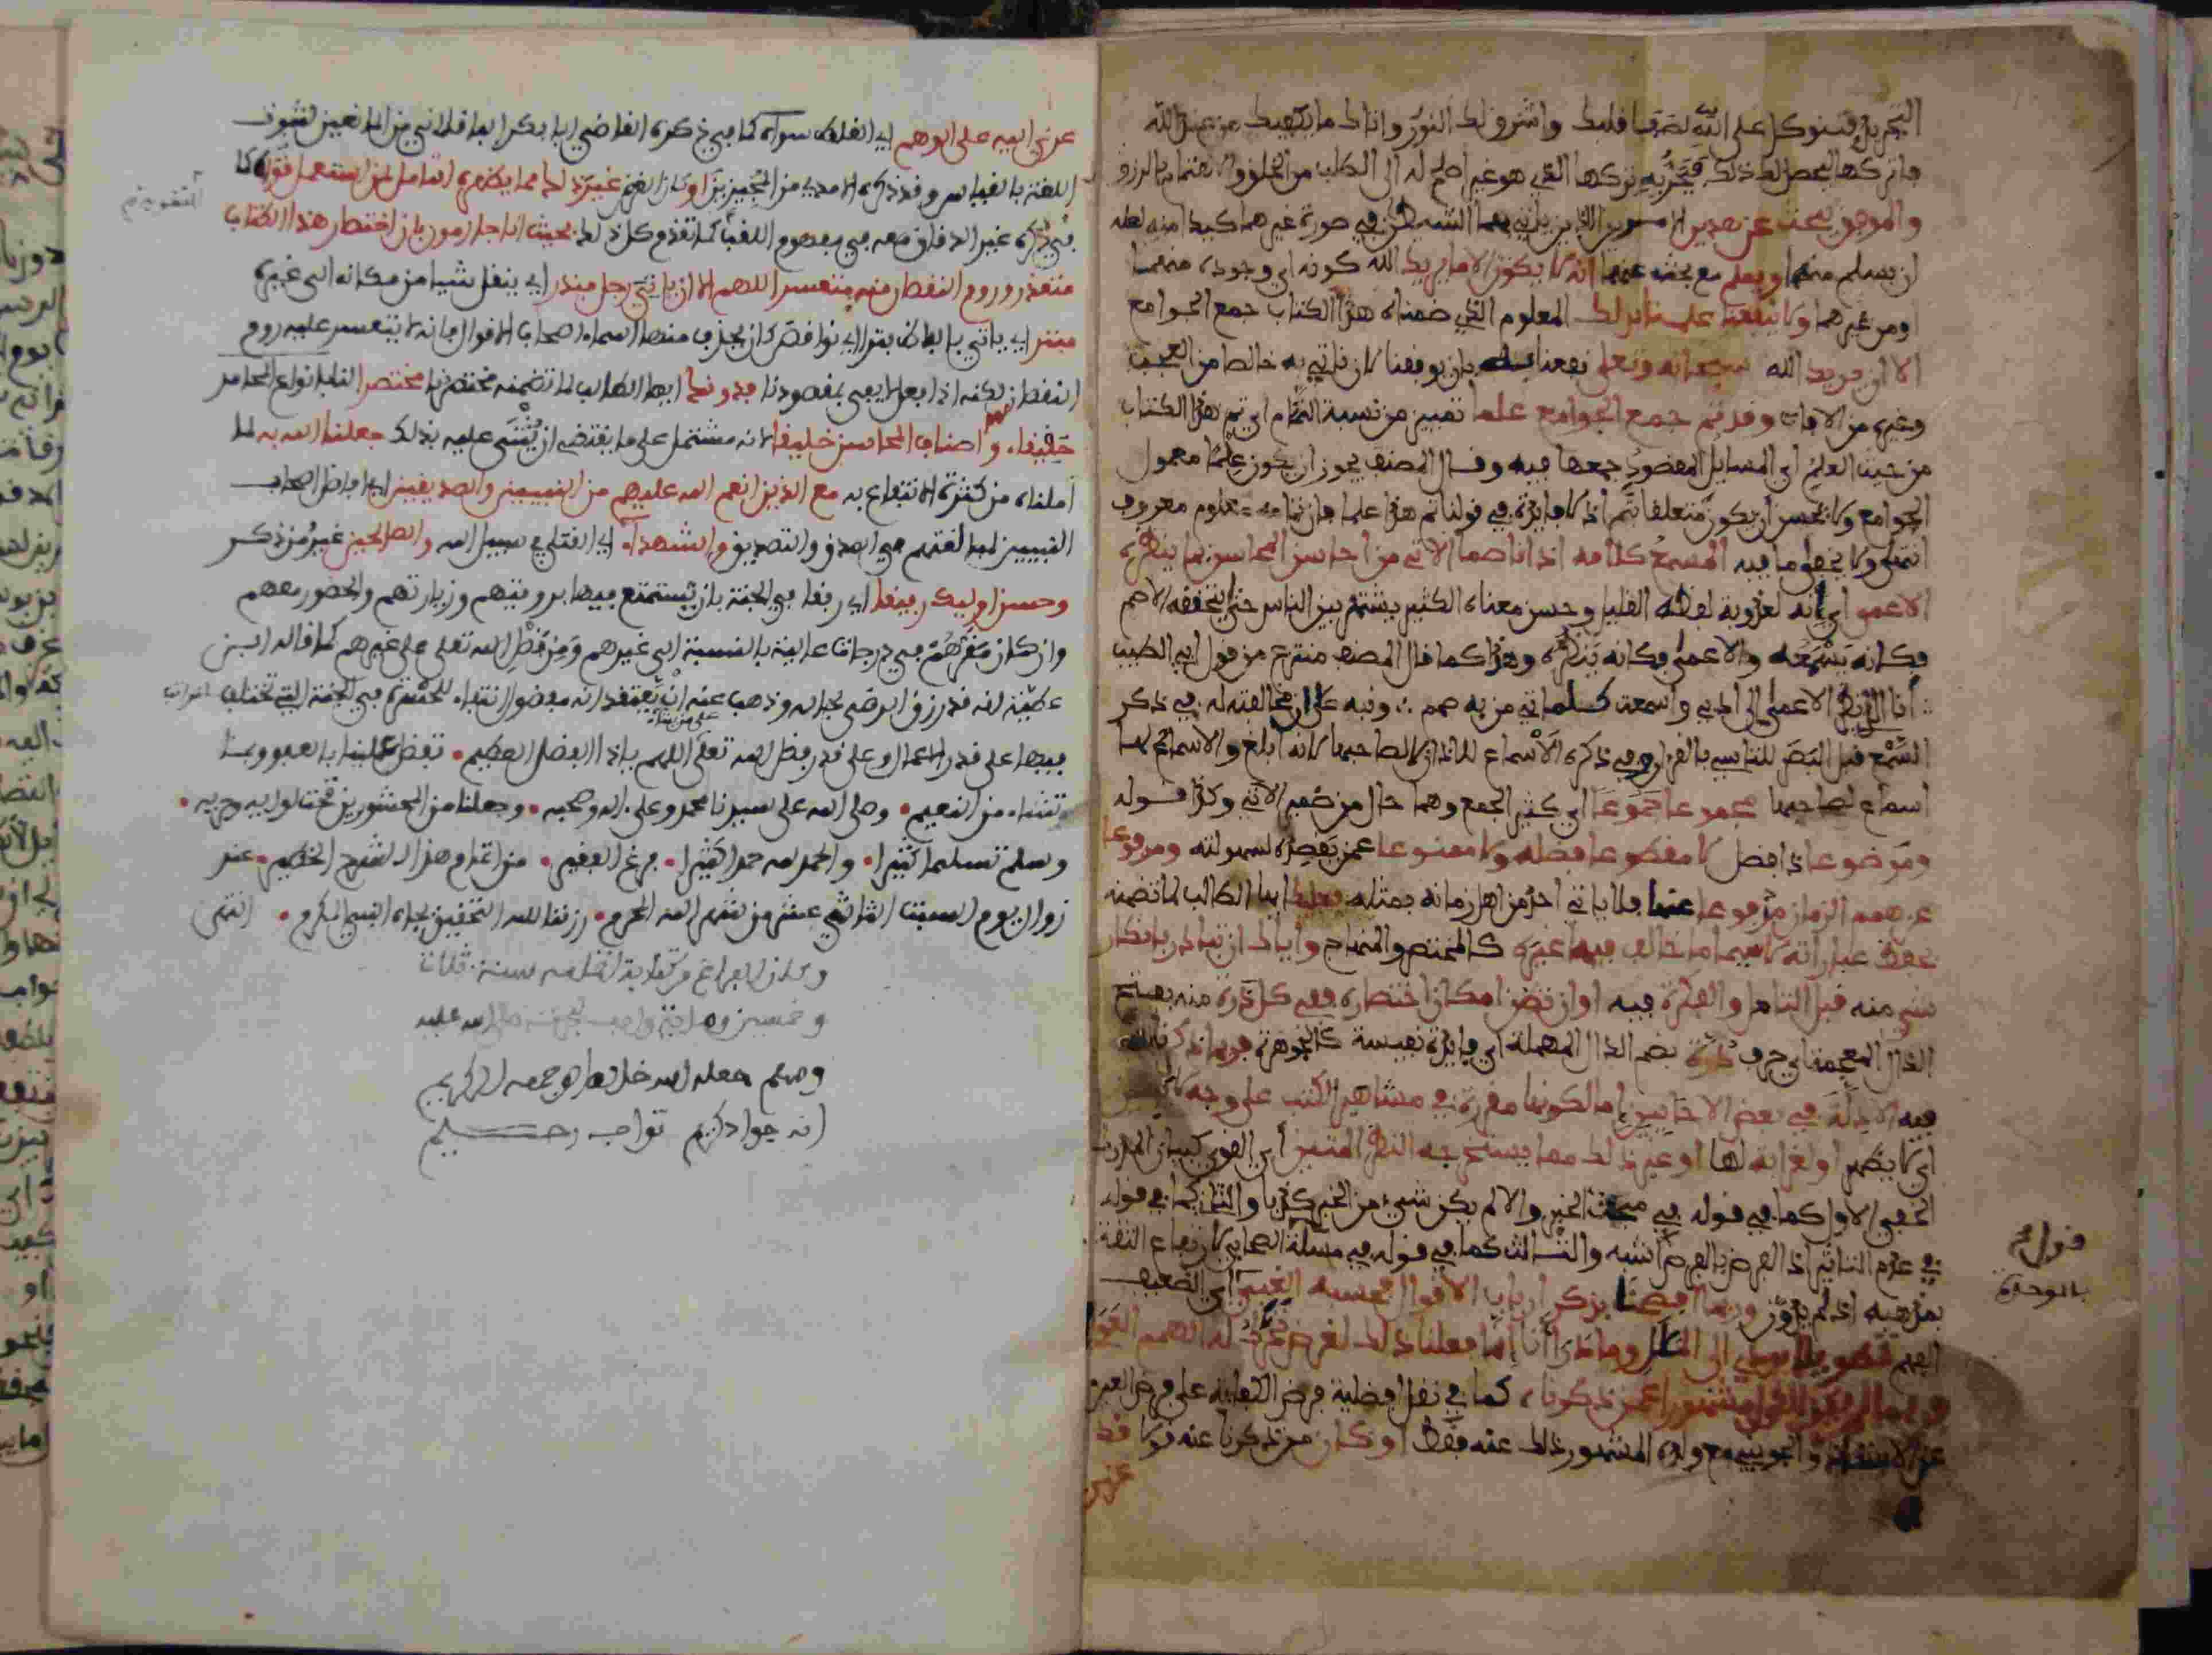 التجريد فتوكل على الله لصفا قلبك واشرق لك النور واتاك ما يكفيك من عند الله
فاتركها ليحصل لك ذلك فيجره تركها الذي هو غير اصلح له الى الطلب من الخلق والاهتمام بالرزق
والموفق يبحث عن هذين الامرين الذين ياتي بهما الشيطان في صورة غيرهما كيدا منه لعله
ان يسلم منهما ويعلم مع بحثه عنهما انه لا يكون الا ما يريد الله كونه اي وجوده منهما
او من غيرهما ولا ينفعنا علمنا بذلك المعلوم الذي ضمناه هذا الكتاب جمع الجوامع
الا ان يريد الله سبحانه وتعلى نفعنا به بان يوفقنا لان ناتي به خالصا من العجب
وغيره من الافات وقد تم جمع الجوامع علما تمييز من نسبة التمام اي تم هذا الكتاب
من حيث العلم اي المسايل المقصود جمعها فيه وقال المصنف يجوز ان يكون علما معمول
الجوامع ولا يحسن ان يكون متعلقا بتم اذ لا فايدة في قولنا تم هذا علما فان تمامه معلوم معروف
انتهى ولا يخفى ما فيه المسمع كلامه اذانا صما الاتي من احاسن المحاسن بما ينظره
الاعمى اي انه لعذوبة لفظه القليل وحسن معناه الكثير يشتهر بين الناس حتى يتحققه الاصم
فكانه يسمعه والاعمى فكانه ينظره وهذا كما قال المصنف منتزع من قول ابي الطيب
انا الذي نظر الاعمى الى ادبي واسمعت كلماتي من به صمم ونبه على ان مخالفته له في ذكر
السمع قبل البصر للتاسي بالقران وفي ذكره الاسماع للاذان لا لصاحبها لانه ابلغ والاسماع لها
اسماع لصاحبها مجموعا جموعا اي كثير الجمع وهما حال من ضمير الاتي وكذا قوله
وموضوعا ذا فضل لا مقطوعا فضله ولا ممنوعا عمن يقصده لسهولته ومرفوعا
عن همم الزمان مدفوعا عنها فلا ياتي احد من اهل زمانه بمثله فعليك ايها الطالب لما تضمنه
بحفظ عباراته لا سيما ما خالف فيها غيره كالمختصر والمنهاج واياك ان تبادر بانكار
شيء منه قبل التامل والفكرة فيه او ان تظن امكان اختصاره ففي كل ذرة منه بفتح
الذال المعجمة اي حرف درة بضم الدال المهملة اي فايدة نفيسة كالجوهرة فربما ذكرنا
فيه الادلة في بعض الاحايين اما لكونها مقررة في مشاهير الكتب على وجه لا يبين
اي لا يظهر او لغرابة لها او غير ذلك مما يستخرجه النظر المتين اي القوي كبيان المدرك
الخفي الاول كما في قوله في مبحث الخبر والا لم يكن شيء من الخبر كذبا والثاني كما في قوله
في عدم التاثير اذ الفرض بالفرض اشبه والثالث كما في قوله في مسلة الصحابي لارتفاع الثقة
بمذهبه اذ لم يدون وربما افصحنا بذكر ارباب الاقوال فحسبه الغبي اي الضعيف
الفهم تطويلا يودي الى الملال وما درى انا انما فعلنا ذلك لغرض تحرك له الهمم العوال
فربما لم يكن القول مشهورا عمن ذكرناه كما في نقل افضلية فرض الكفاية على فرض العين
عن الاستاذ والجويني مع ولده المشهور ذلك عنه فقط او كان من ذكرنا عنه قولا قد
عزي
قوله
بالوحدة
عزي اليه على الوهم اي الغلط سواه كما في ذكره القاضي ابا بكر الباقلاني من المانعين لثبوت
اللغة بالقياس وقد ذكره الامدي من المجيزين او كان الغرض غير ذلك مما يظهره التامل لمن استعمل قواه كما
في ذكره غير الدقاق معه في مفهوم اللقب كما تقدم وكل ذلك بحيث انا جازمون بان اختصار هذا الكتاب
متعذر وروم النقصان منه متعسر اللهم الا ان ياتي رجل مبذر اي ينقل شيئا من مكانه الى غيره
مبتر اي ياتي بالفاظ بترا اي نواقص كان يحذف منها اسماء اصحاب الاقوال فانه لا يتعسر عليه روم
النقصان لكنه اذا فعل لا يفي بمقصودنا فدونك ايها الطالب لما تضمنه مختصرنا مختصرا انقابل انواع المحامد
حقيقا واصناف المحاسن خليقا لانه مشتمل على ما يقتضي ان يثنى عليه بذلك جعلنا الله به لما
املناه من كثرة الانتفاع به مع الذين انعم الله عليهم من النبيين والصديقين اي افاضل اصحاب
النبيين لمبالغتهم في الصدق والتصديق والشهداء اي القتلى في سبيل الله والصالحين غير من ذكر
وحسن اوليك رفيقا اي رفقا في الجنة بان يستمتع فيها برويتهم وزيارتهم والحضور معهم
وان كان مقرهم في درجات عالية بالنسبة الى غيرهم ومن فضل الله تعلى على غيرهم كما قاله ابن
عطية انه قد رزق الرضى بحاله وذهب عنه ان يعتقد انه مفضول انتفاء للحسرة في الجنة التي تختلف المراتب
فيها على قدر الاعمال وعلى قدر فضل الله تعلى اللهم ياذا الفضل العظيم تفضل علينا بالعفو وبما
تشاء من النعيم وصلى الله على سيدنا محمد وعلى اله وصحبه وجعلنا من المحشورين تحت لوايه وحزبه
وسلم تسليما كثيرا والحمد لله حمدا كثيرا فرغ الفقير من اتمام هذا الشرح الخطير عند
زوال يوم السبت الثاني عشر من شهر الله المحرم رزقنا الله التحقيق بجاه النبي المكرم انتهى
وكان الفراغ من كتابة سنة ثلاث
وخمسين وماية والف صلى الله عليه
وسلم جعله الله خالصا لوجهه الكريم
انه جواد كريم تواب رحيم